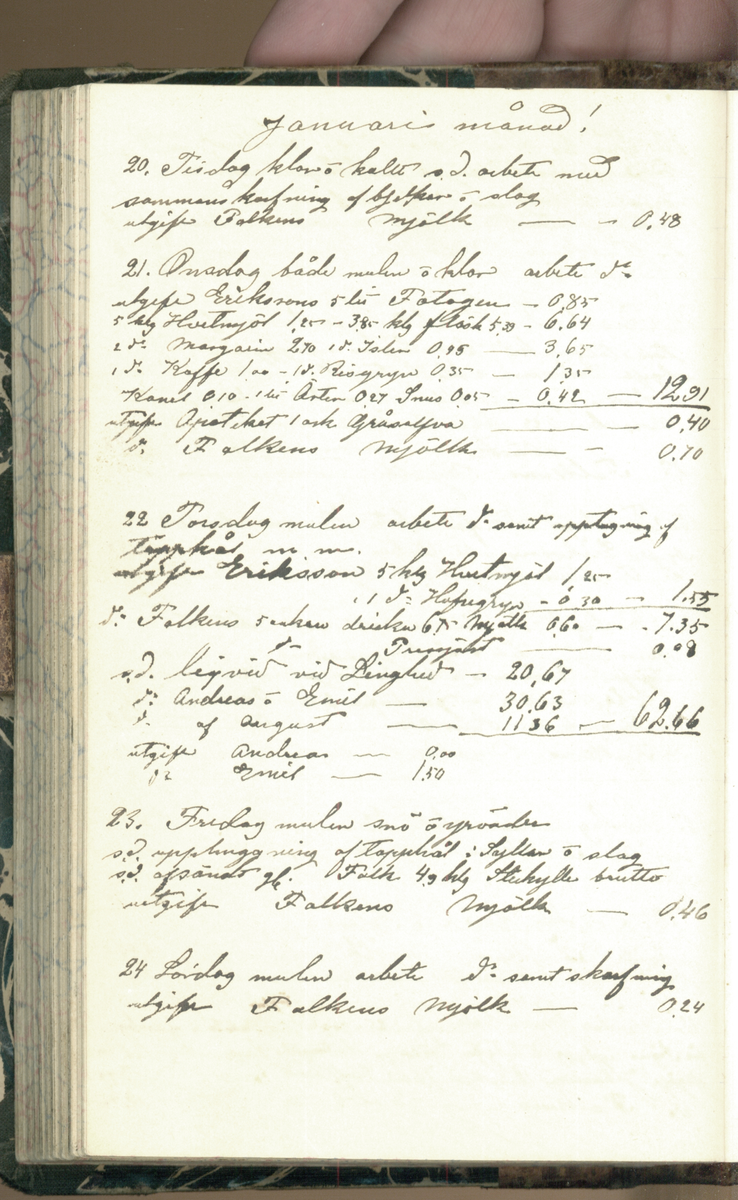 Januari månad!
20. Tisdag klar ö kallt s.d. arbete med
sammanskarfning af bjelkar ö slag
utgift Falkens Mjölk — - 0,48
21. Onsdag både mulen ö klar arbete do
utgift Erikssons 5 lit Fotogen - 0,85
5 klg Hvetmjöl 1,25 - 3,85 klg fläsk 5,39 - 6,64
2 do Margarin 2,70 1 do Islen 0,95 — 3,65
1 do Kaffe 1,00 - 1 d. Risgryn 0,35 — 1,35
Kanel 0,10 - 1 lit Ärter 0,27 Snus 0,05 - 0,42 — 12,91
utgift Apoteket 1 ask Gråsalfva — 0,40
d. Falkens Mjölk — - 0,70
22 Torsdag mulen arbete do samt upptagning af
tapphål m.m.
utgift Eriksson 5 klg Hvetmjöl 1,25
1 do Hafregryn - 0,30 — 1,55
do Falkens 5 ankare dricka 6,75 Mjölk 0,60 — - 7.35
do Pressjäst — 0,08
s.d. liqvid vid Linghed - 20,67
do Andreas ö Emil — 30,63
d. af August — 11 36 — 62,66
utgift Andreas — 0,00
do Emil — 1,50
23. Fredag mulen snö ö yrväder
s.d. upphuggning af tapphål i Syllar ö slag
s.d. afsändt gl. Falk 4,9 klg brutto
utgift Falkens Mjölk — 0,46
24 Lördag mulen arbete do samt skarfning
utgift Falkens Mjölk — 0,24